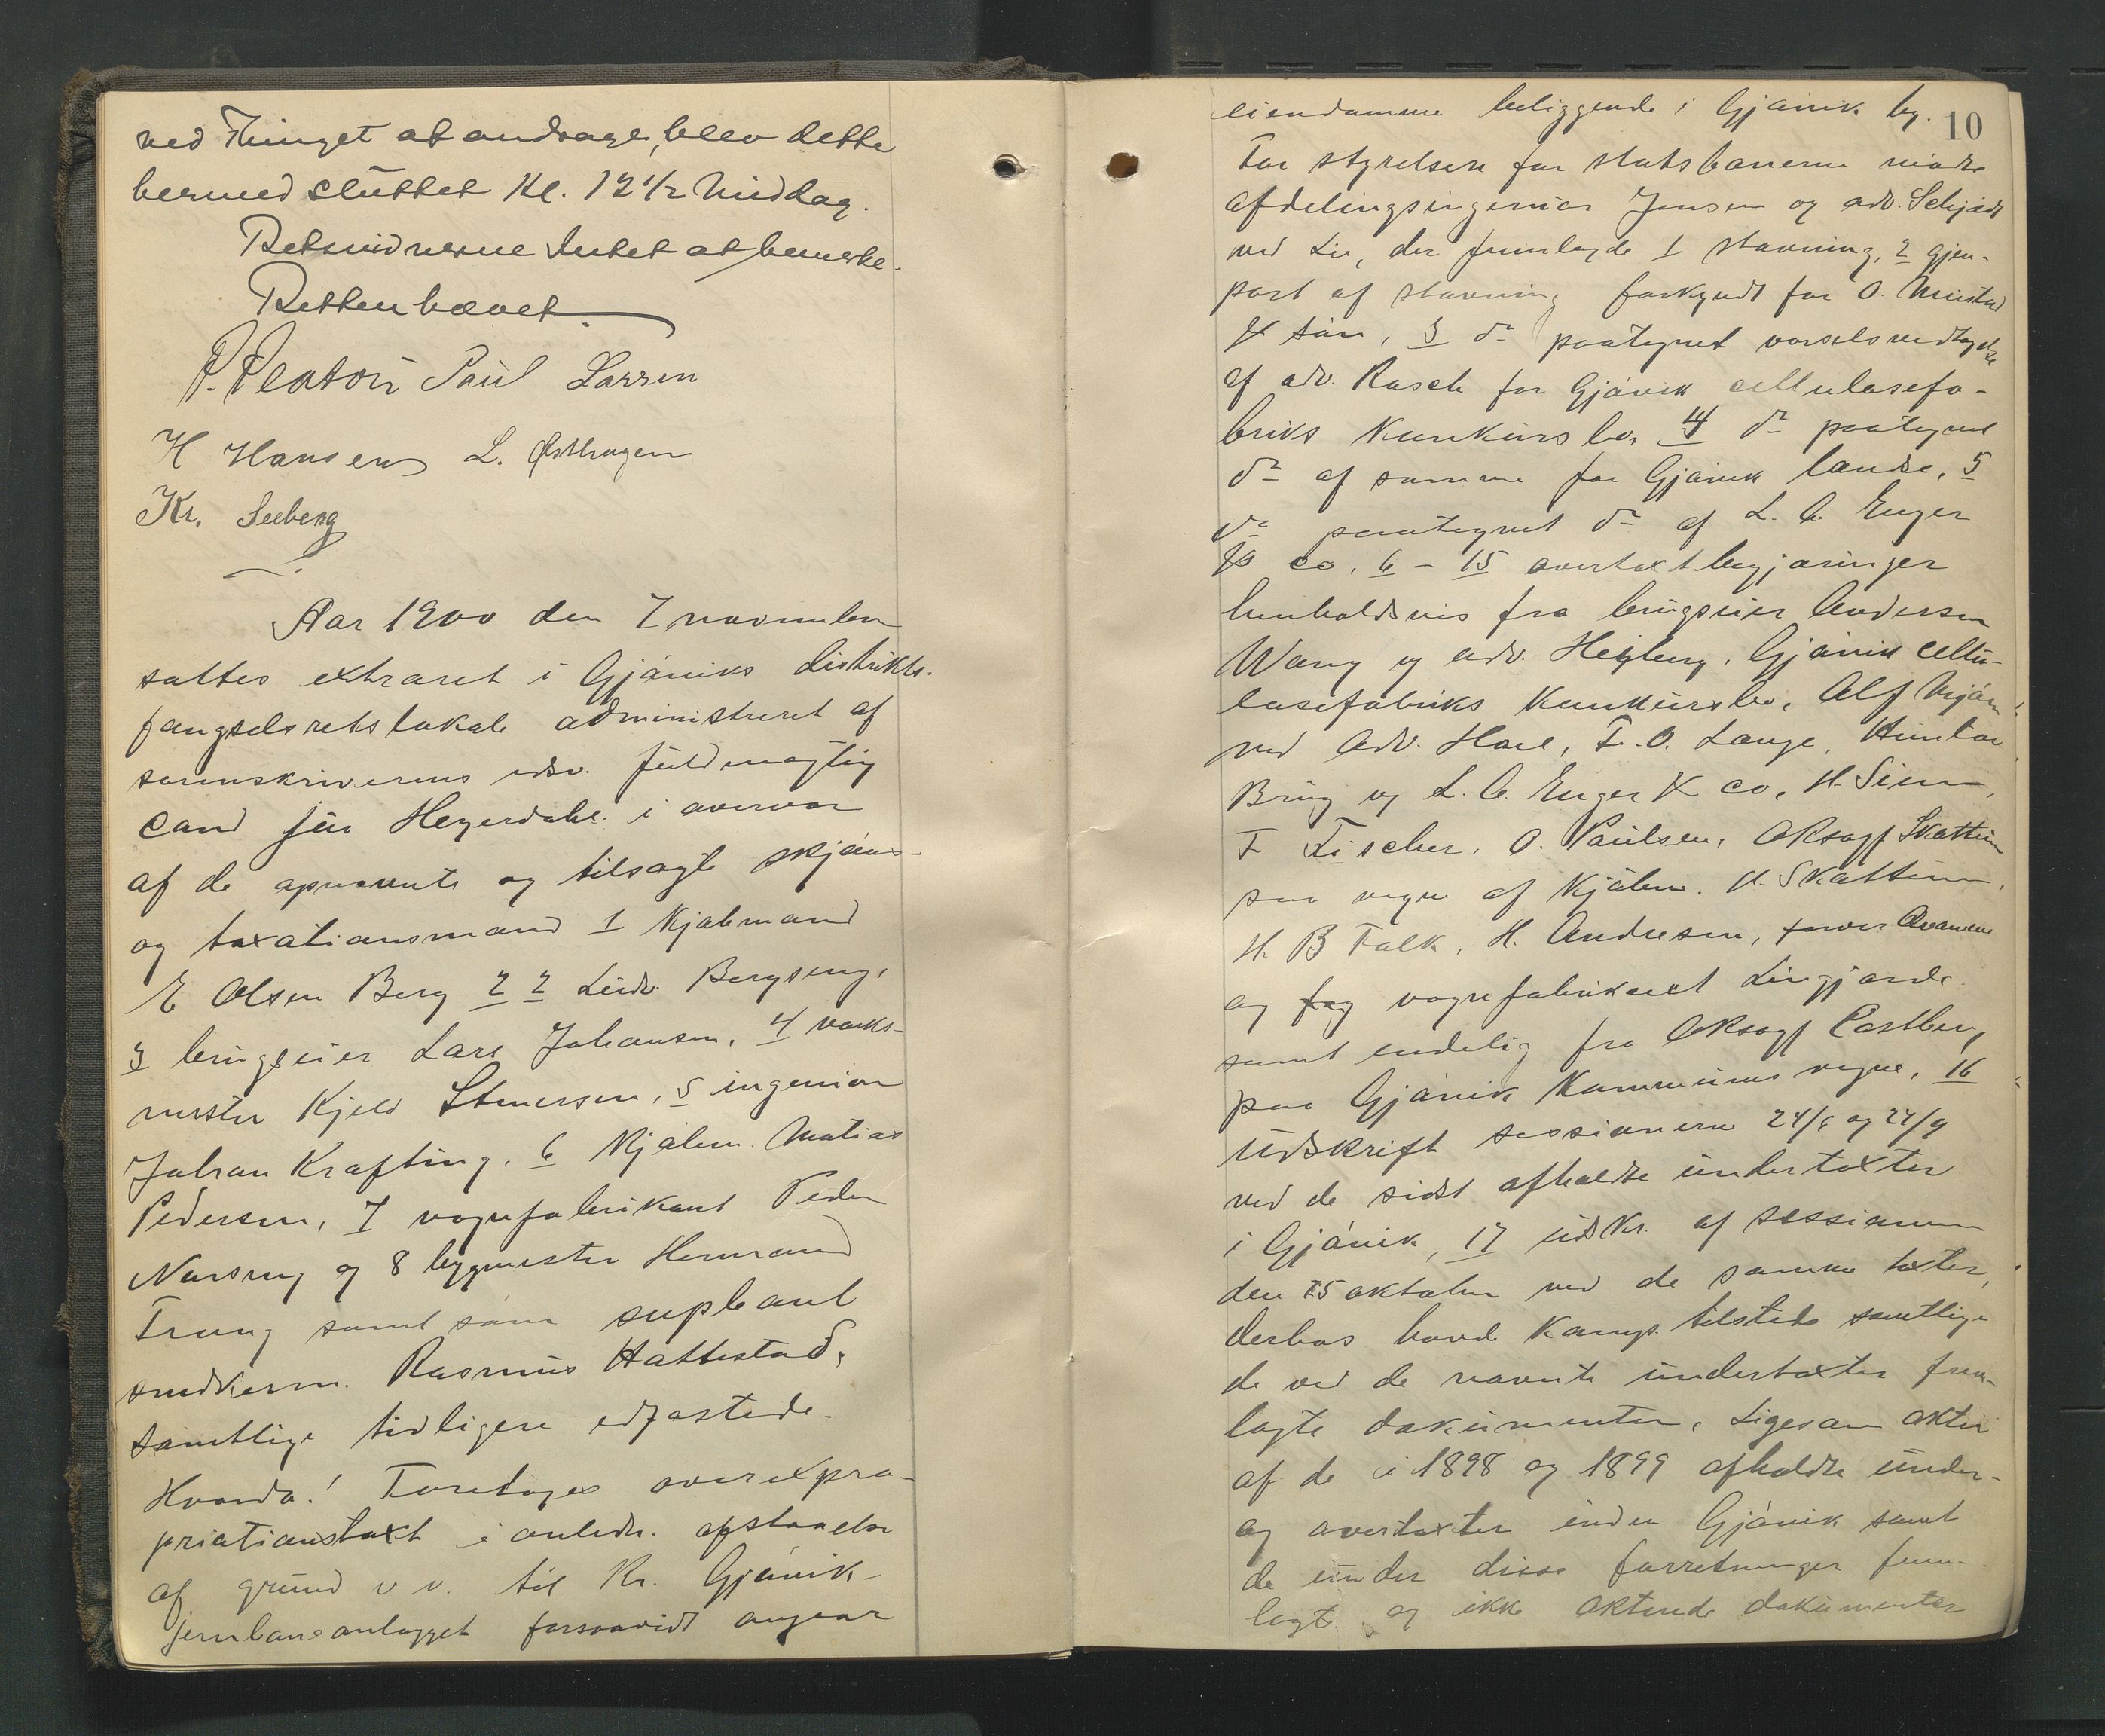 ved Thinget at andrage, blev dette
hermed sluttet Kl. 12 1/2 Middag.
Retsvidnerne Intet at bemerke.
Retten hævet.
P. Platou Paul Larsen
H Hansen L. Østhagen
Kr. Seeberg
Aar 1900 den 7 november
sattes extraret i Gjøviks distrikts-
fængselsretslokale administreret af
sorenskriverens edsv. fuldmægtig
cand jur Heyerdahl i overvær
af de opnævnte og tilsagte skjøns-
og taxationsmænd 1 Kjøbmand
E Olsen Berg 2 2 Ludv. Bergseng,
3 brugseier Lars Johansen, 4 værks-
mester Kjeld Stenersen, 5 ingeniør
Johan Krafting, 6 Kjøbm. Matias
Pedersen, 7 vognfabrikant Peder
Narseng og 8 bygmester Hermand
Trang samt som supleant
snedkerm. Rasmus Hattestad,
samtlige tidligere edfæstede.
Hvorda! Foretoges overexpro-
priationstaxt i anledn. afstaaelse
af grund v v. til Kr. Gjøvik-
jernbaneanlægget forsaavidt angaar
10
eiendomme beliggende i Gjøvik by.
For styrelsen for statsbanerne mødte
afdelingsingeniør Jensen og adv. Schjødt
ved Lie, der fremlagde 1 stævning, 2 gjen-
part af stævning forkyndt for O. Mustad
& søn, 3 do paategnet varselsvedtagelse
af adv. Rasch for Gjøvik cellulosefa-
briks Konkursbo, 4 do paategnet
do af samme for Gjøvik lande, 5
do paategnet do af L. C. Enger
& co, 6 – 15 overtaxtbegjæringer
henholdsvis fra brugseier Andersen
Wang og adv. Heyberg, Gjøvik cellu-
losefabriks Konkursbo, Alf Mjøen
ved Adv. Hoel, F. O. Lange, Hunton
Brug og L. C. Enger & co, H. Siem,
F Fischer, O. Paulsen, Oksagf Skattum
paa vegne af Kjøbm. H. Skattum,
H. B Falk, H. Andresen, farver Evensen
og fog vognfabrikant Lingjærde
samt endelig fra Oksagf Castberg
paa Gjøvik Kommunes vegne, 16
Udskrift sessionerne 24/8 og 24/9
ved de sidst afholdte undertaxter
i Gjøvik, 17 udskr. af sessionen
den 15 oktober ved de samme taxter,
derhos havde Komp. tilstede samtlige
de ved de nævnte undertaxter frem-
lagte dokumenter, ligesom akter
af de i 1898 og 1899 afholdte under-
og overtaxter inden Gjøvik samt
de under disse forretninger frem-
lagte og ikke akterede dokumenter